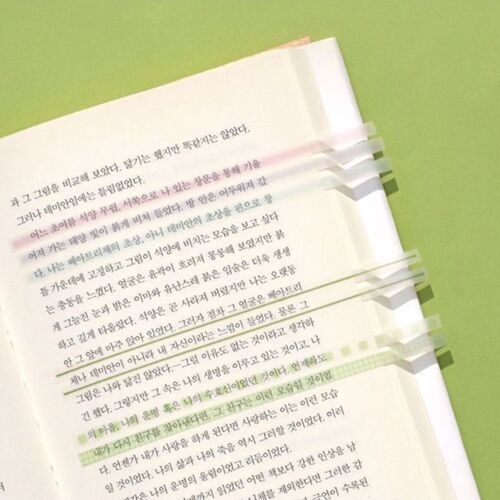 과 그 그림을 비교해 보았다. 닮기는 했지만 똑같지는 않았다.
그러나 데미안임에는 틀림없었다.
어느 초여름 석양 무렵, 서쪽으로 나 있는 창문을 통해 기울
어져 가는 태양 빛이 붉게 비쳐 들었다. 방 안은 어두워져 갔
다. 나는 베아트리체의 초상, 아니 데미안의 초상을 핀으로 창
틀 가운데에 고정하고 그림에 석양에 비치는 모습을 보고 싶다
는 충동을 느꼈다. 얼굴은 윤곽이 흐려져 몽롱해 보였지만 붉
게 그늘진 눈과 밝은 이마와 유난스레 붉은 입술은 더욱 생생
하고 깊게 타올랐다. 석양은 곧 사라져 버렸지만 나는 오랫동
안 그 앞에 마주 앉아 있었다. 그러자 점차 그 얼굴은 베아트리
체나 데미안이 아니라 내 자신이라는 느낌이 들었다. 물론 그
그림은 나와 닮진 않았다—그럴 이유도 없는 것이라고 생각하
긴 했다. 그렇지만 그 속은 나의 생명을 이루고 있는 것이고, 나
의 마음, 나의 운명 혹은 나의 수호신이었던 것이다. 언제라도
내가 다시 친구를 찾아낸다면, 그 친구는 이런 모습일 것이었
다. 언젠가 내가 사랑을 하게 된다면 사랑하는 이는 이런 모습
일 것이었다. 나의 삶과 나의 죽음 역시 그러할 것이었다. 이러
한 것이 나의 운명의 울림이었고 리듬이었다.